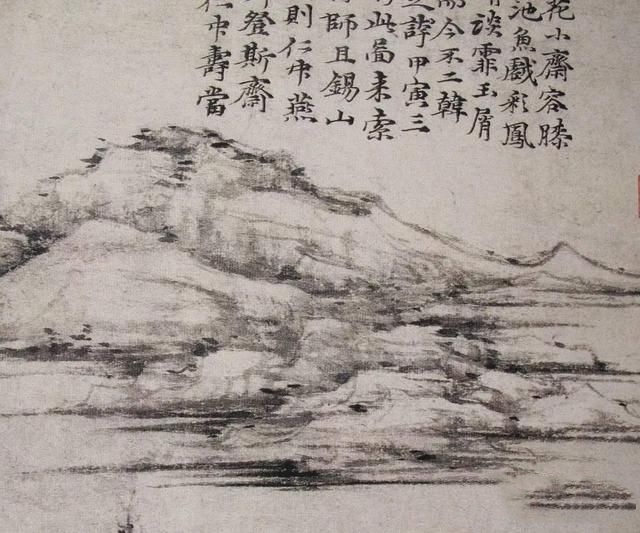 花小齋容膝
池魚戲彩鳳
談霏玉屑
而今不二韓
誇甲寅三
此圖来索
師且錫山
則仁中燕
登斯齋
仁中壽當